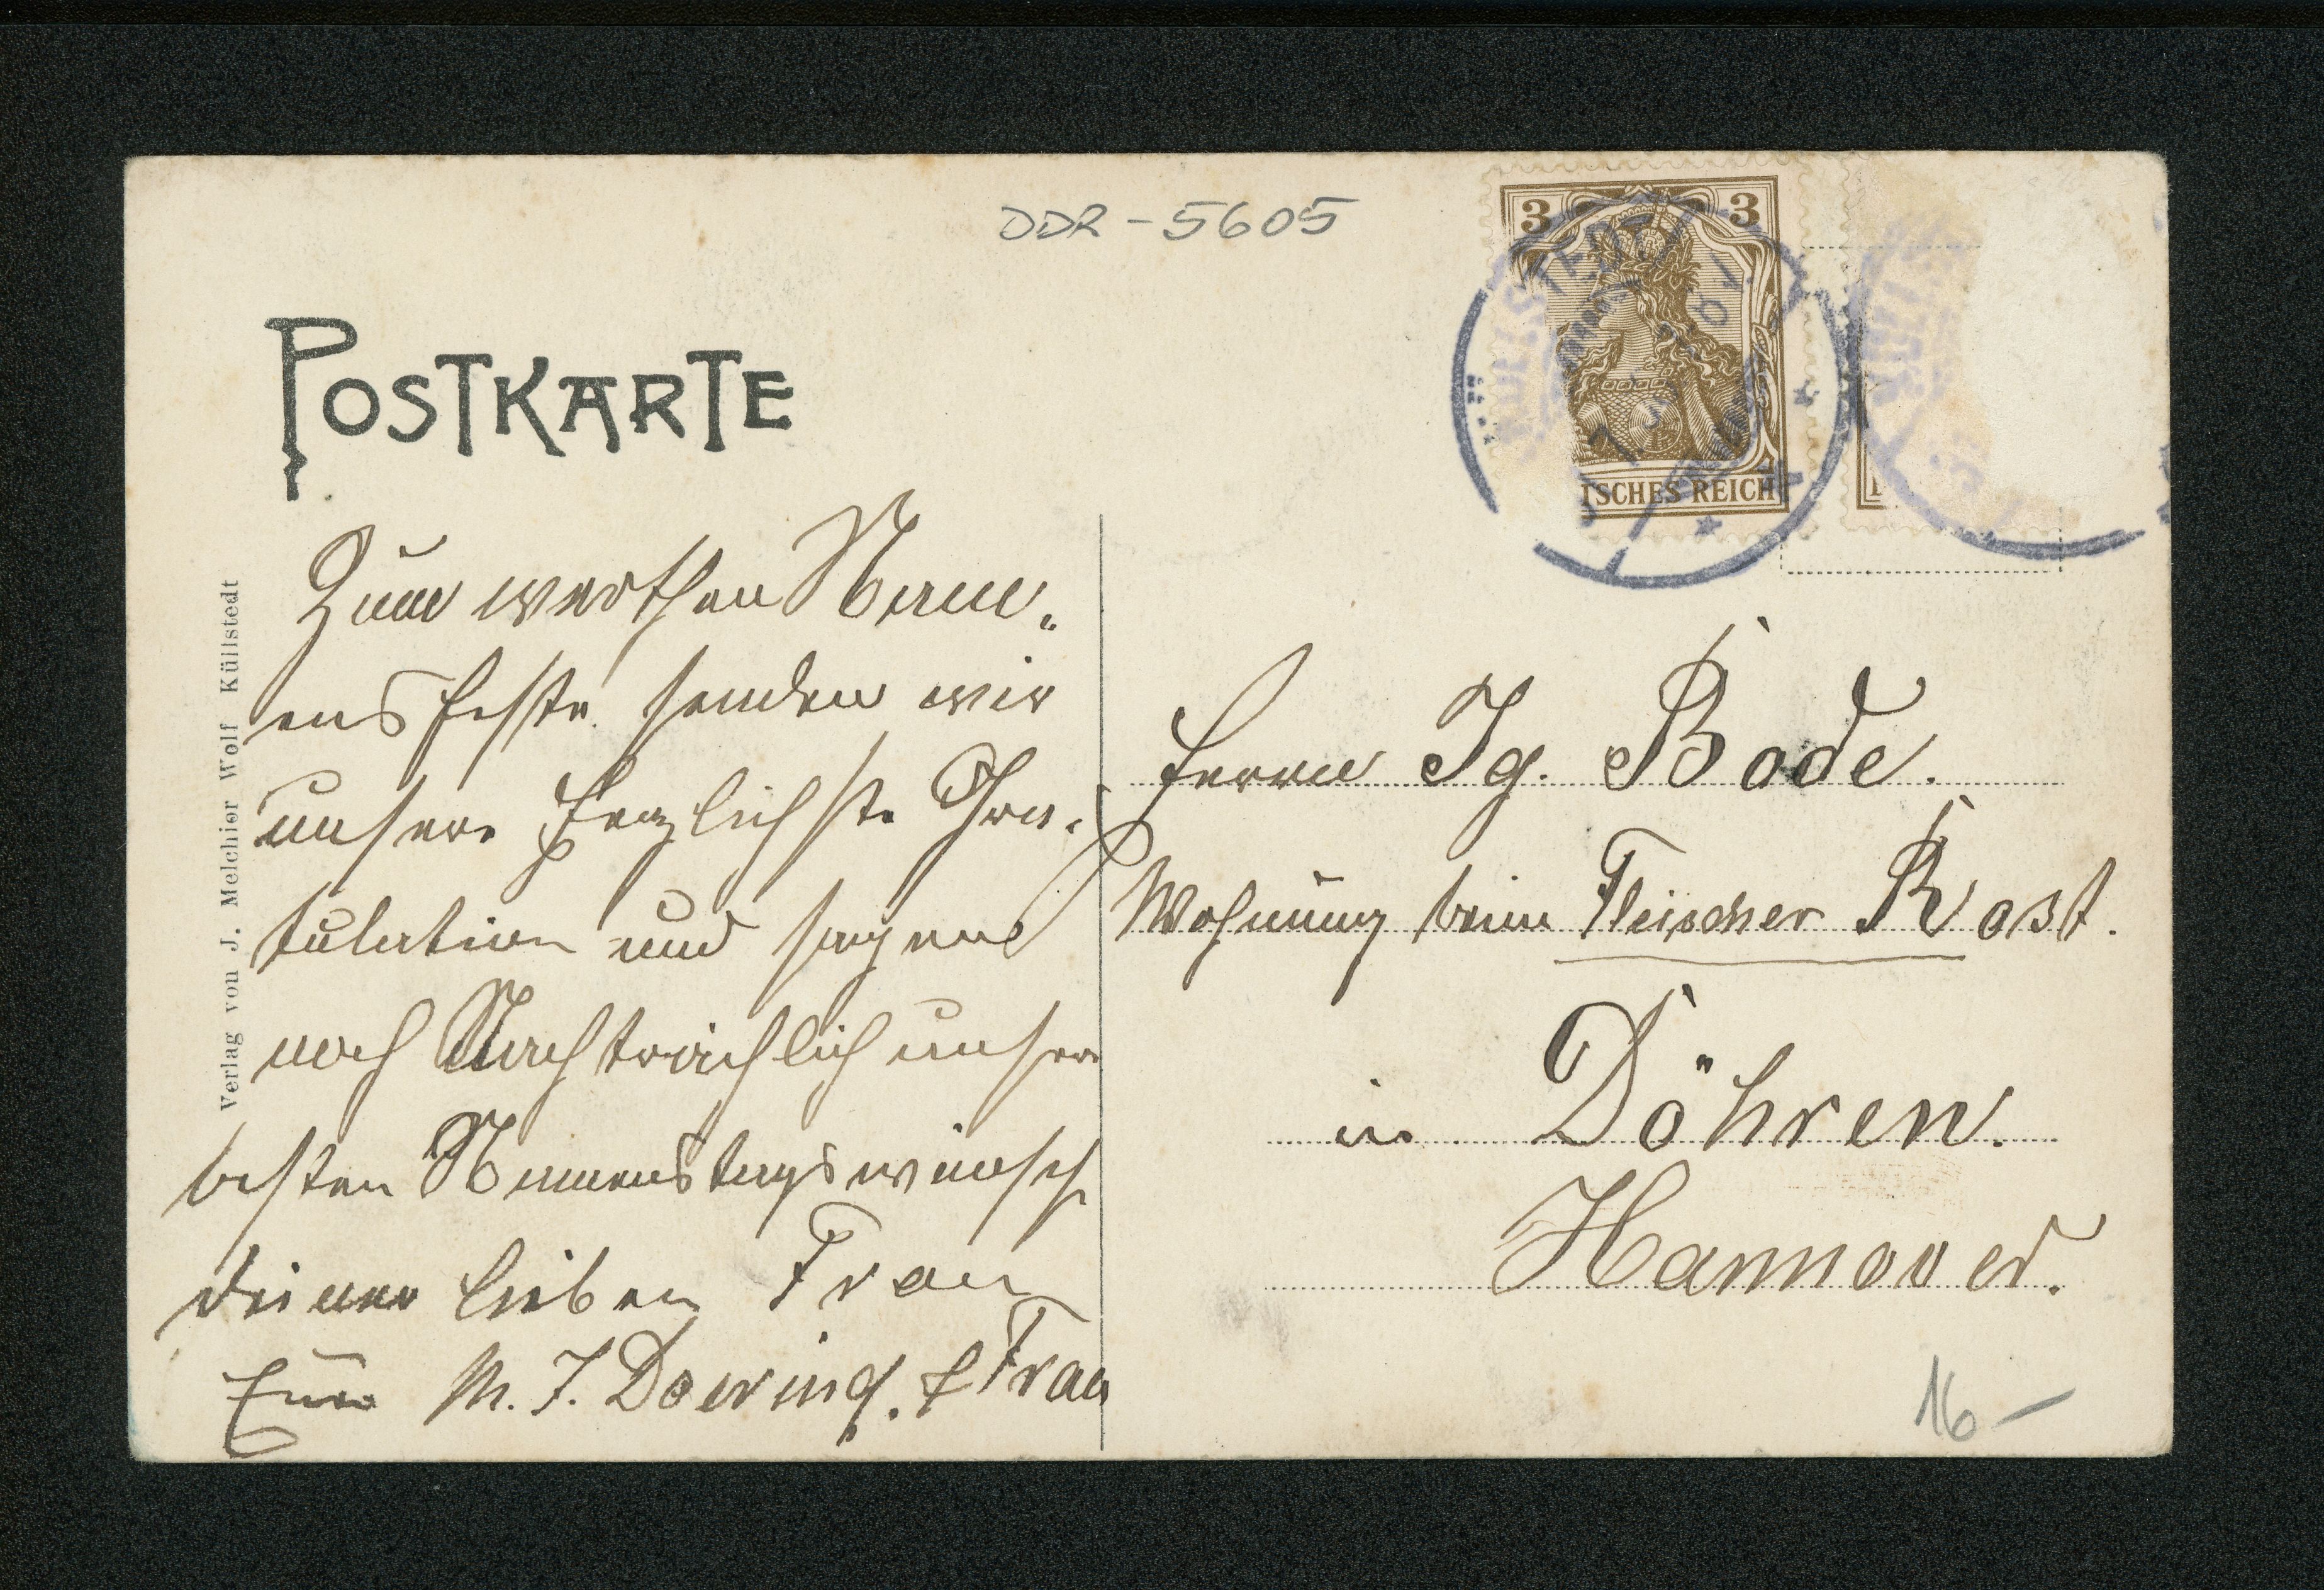 DDR - 5605
3 3
TSCHES REICH
POSTKARTE
Verlag von J. Melchior Wolf Küllstedt
Zum werthen Namen-
ensfeste senden wir
unsere herzlichste Gra-
tulation und sagen
noch Nachträchlich unsere
besten Namenstagswünsch
deiner lieben Frau
Eure M. J. Doering. & Frau
Herrn Jg. Bode.
Wohnung beim Fleischer Rost.
in Döhren.
Hannover.
16 -